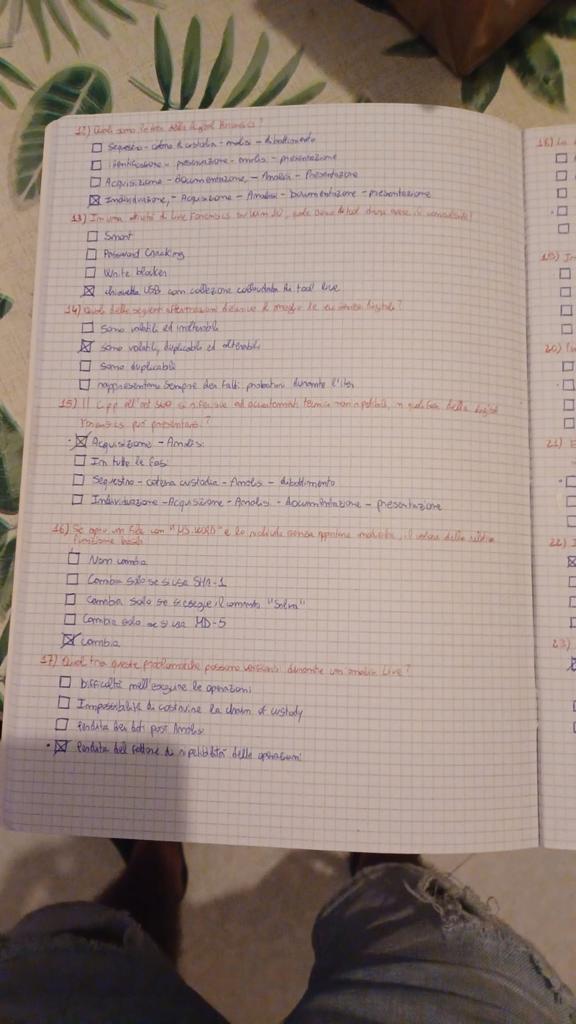 12) Quali sono le fasi della digital Forensics?
☐ Sequestro - catena di custodia - analisi - dibattimento
☐ identificazione - preservazione - analisi - presentazione
☐ Acquisizione - documentazione, - Analisi - Presentazione
☒ Individuazione, - Acquisizione - Analisi - Documentazione - presentazione
13) In una attività di Live Forensics su Win 10, quale tool
☐ Smart
☐ Password Cracking
☐ Write blocker
☒ chiavetta USB con collezione collaudata di tool live
14) Quale delle seguenti affermazioni descrive il meglio le digitali?
☐ sono volatili ed inalterabili
☒ sono volatili, duplicabili ed alterabili
☐ sono duplicabili
☐ rappresentano sempre dei fatti probatori durante l'iter
15) Il cpp all'art 360 si riferisce ad accertamenti tecnici non ripetibili, in quali fasi della digital
Forensics può presentarsi?
☒ Acquisizione - Analisi
☐ In tutte le fasi
☐ Sequestro - catena custodia - Analisi - dibattimento
☐ Individuazione - Acquisizione - Analisi - documentazione - presentazione
16) Se apro un file con "MS-WORD" e lo richiudo senza apportare modifiche, il valore della relativa
funzione hash
☐ Non cambia
☐ Cambia solo se si usa SHA-1
☐ Cambia solo se si esegue il comando "Salva"
☐ Cambia solo se si usa MD-5
☒ cambia
17) Quali tra queste problematiche possono verificarsi durante un analisi Live?
☐ Difficoltà nell'eseguire le operazioni
☐ Impossibilità di costruire la chain of custody
☐ Perdita dei dati post Analisi
☒ Perdita del fattore di ripetibilità delle operazioni
18)
19)
20)
21)
22)
23)